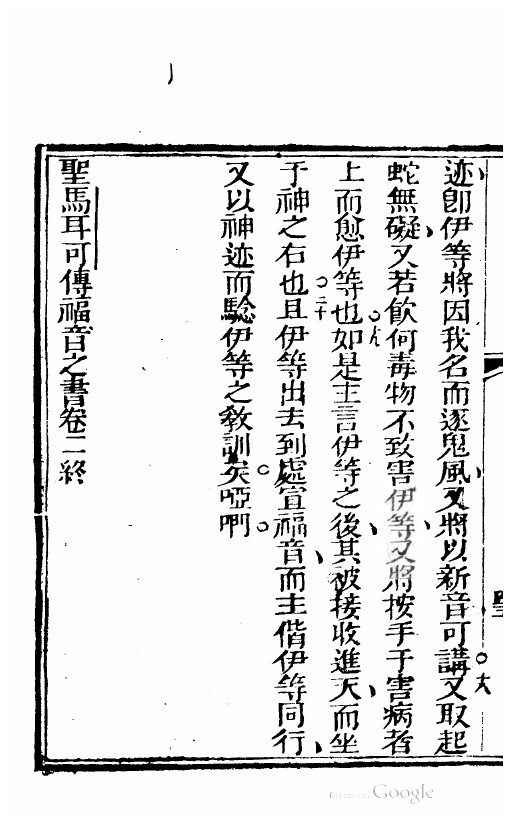 迹、卽伊等將因我名而逐鬼風、又將以新音可講。○十八又取起
蛇無礙、又若飲何毒物不致害伊等、又將按手于害病者
上而愈伊等也。○十九如是主言伊等之後、其被接收進天、而坐
于神之右也。○二十且伊等出去到處宣福音、而主偕伊等同行、
又以神迹而驗伊等之教訓矣。啞啊。
聖馬耳可傳福音之書卷二終
Digitized by Google